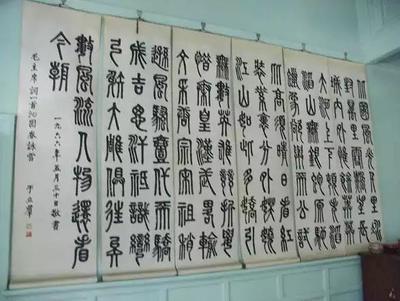 北國風光千里冰
封萬里雪飄望長
城內外惟餘莽莽
大河上下頓失滔
滔山舞銀蛇原馳
蠟象欲與天公試
比高須晴日看紅
裝素裹分外妖嬈
江山如此多嬌引
無數英雄競折腰
惜秦皇漢武略輸
文采唐宗宋祖稍
遜風騷一代天驕
成吉思汗祇識彎
弓射大雕俱往矣
數風流人物還看
今朝
一九六六年五月三十日敬書
毛主席詞一首沁園春詠雪
于立群